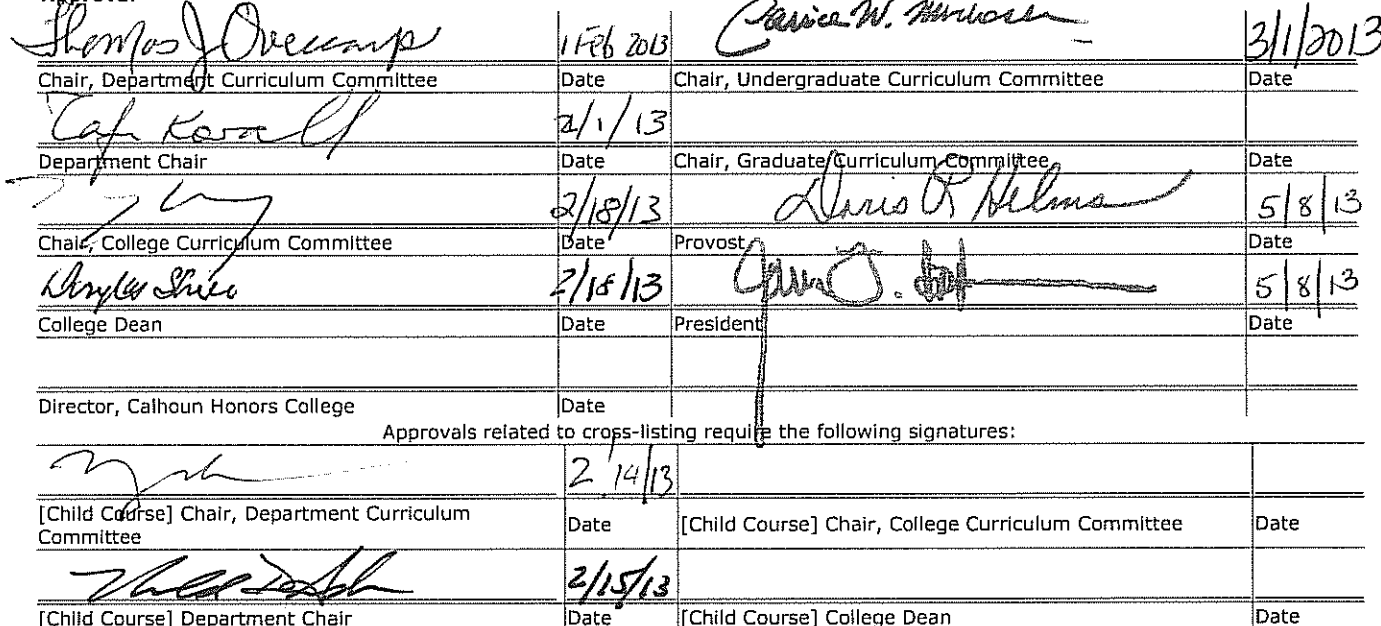 Thomas J Overcamp 1 Feb 2013 3/1/2013
Chair, Department Curriculum Committee Date Chair, Undergraduate Curriculum Committee Date
2/1/13
Department Chair Date Chair, Graduate Curriculum Committee Date
2/18/13 Doris R Helms 5/8/13
Chair, College Curriculum Committee Date Provost Date
2/18/13 5/8/13
College Dean Date President Date
Director, Calhoun Honors College Date
Approvals related to cross-listing require the following signatures:
2/14/13
[Child Course] Chair, Department Curriculum Committee Date [Child Course] Chair, College Curriculum Committee Date
2/15/13
[Child Course] Department Chair Date [Child Course] College Dean Date